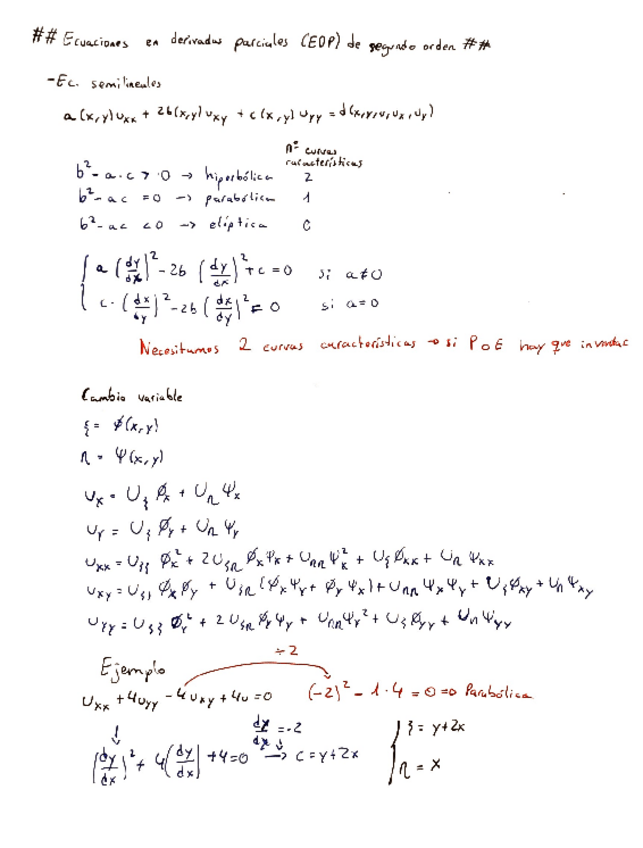 ## Ecuaciones en derivadas parciales (EDP) de segundo orden ##
-Ec. semilineales
a(x,y)uxx + 2b(x,y)uxy + c(x,y)uyy = d(x,y,u,ux,uy)
nº curvas
características
b² - a·c > 0 → hiperbólica 2
b² - ac = 0 → parabólica 1
b² - ac < 0 → elíptica 0
{ a (dy/dx)² - 2b (dy/dx)² + c = 0 si a≠0
c·(dx/dy)² - 2b (dx/dy)² = 0 si a=0
Necesitamos 2 curvas características → si P o E hay que
Cambio variable
ξ = Φ(x,y)
η = Ψ(x,y)
ux = Uξ Φx + Uη Ψx
uy = Uξ Φy + Uη Ψy
uxx = Uξξ Φx² + 2Uξη Φx Ψx + Uηη Ψx² + Uξ Φxx + Uη Ψxx
uxy = Uξξ Φx Φy + Uξη (Φx Ψy + Φy Ψx) + Uηη Ψx Ψy + Uξ Φxy + Uη Ψxy
uyy = Uξξ Φy² + 2Uξη Φy Ψy + Uηη Ψy² + Uξ Φyy + Uη Ψyy
÷2
Ejemplo
uxx + 4uyy - 4uxy + 4u = 0 (-2)² - 1·4 = 0 => Parabólica
↓ dy/dx = -2 { ξ = y+2x
(dy/dx)² + 4(dy/dx) + 4 = 0 → c = y+2x
η = x